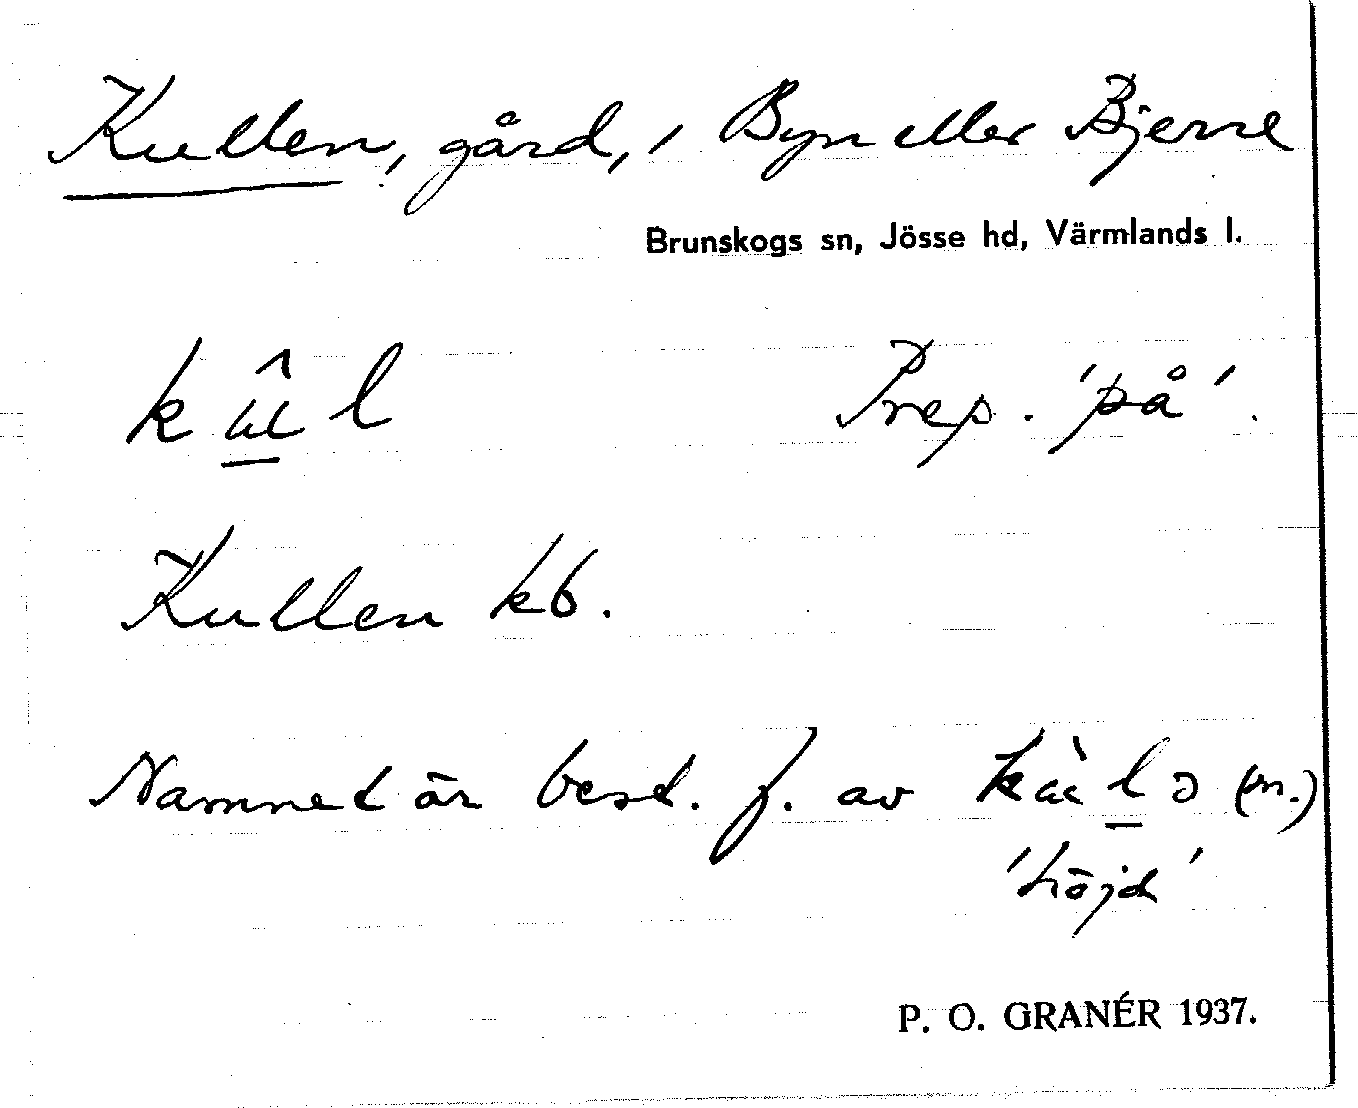 Kullen, gård, i Byn eller Bjerne
Brunskogs sn, Jösse hd, Värmlands l.
kûl Prep. 'på'.
Kullen kb.
Namnet är best. f. av kùlə (m.)
'höjd'
P. O. GRANÉR 1937.